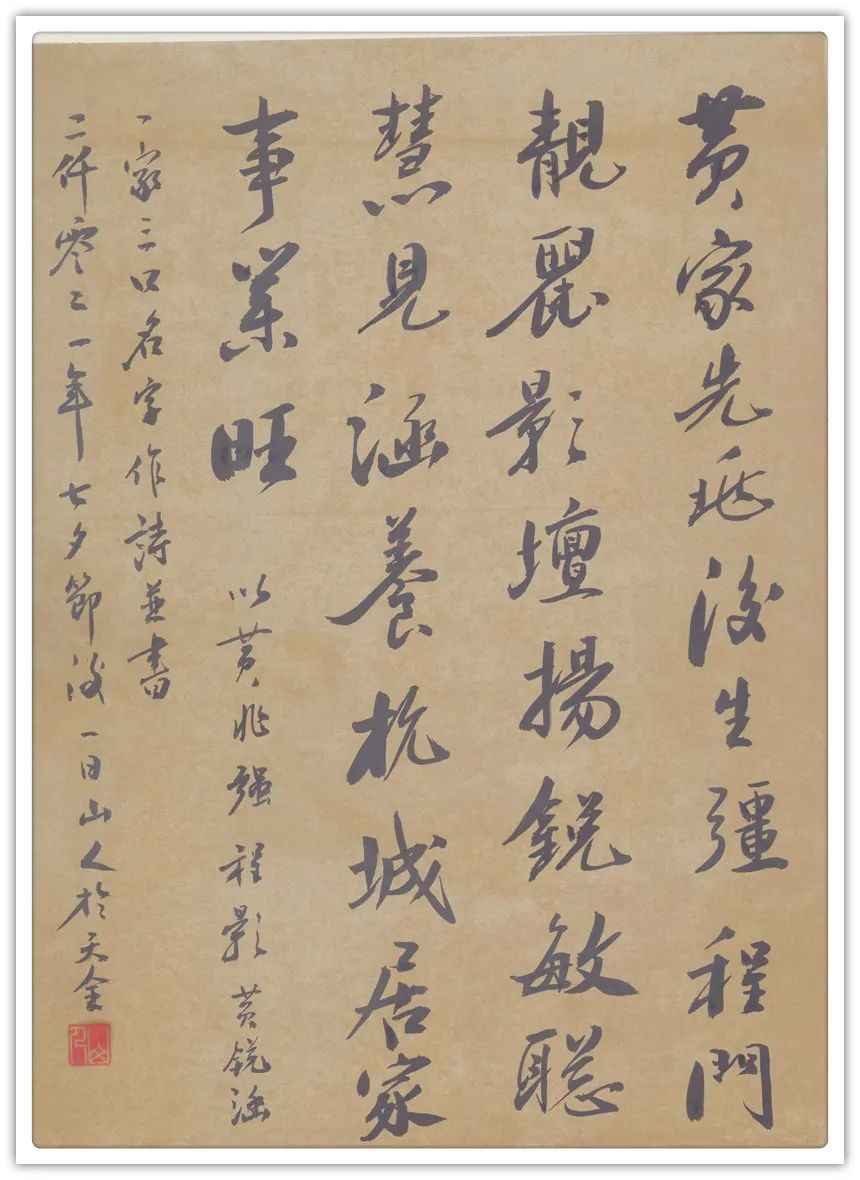 黄家先兆後生彊程門
靚麗影壇揚鋭敏聡
慧見涵養杭城居家
事業旺
以黄兆强程影黄鋭涵
一家三口名字作詩並書
二仟零二一年七夕節後一日山人於天全